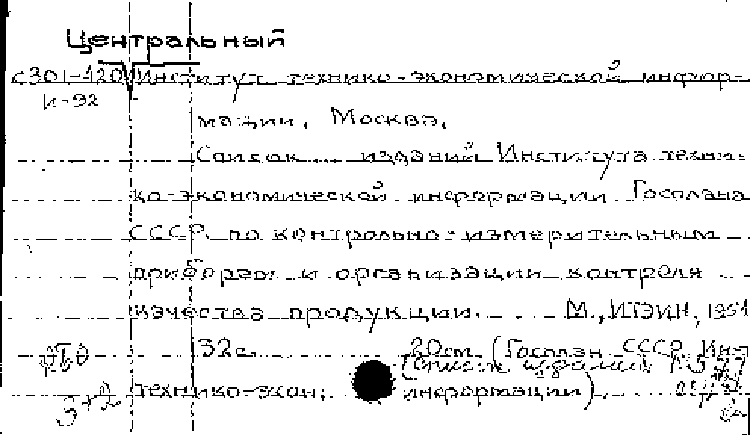 Центральный
с301-420 Институт технико-экономической инфор-
И-92
мации, Москва.
Список изданий Института техни-
ко-экономической информации Госплана
СССР по контрольно-измерительным
приборам и организации контроля
качества продукции. М., ИТЭИН, 1951
32с. 20см. (Госплан СССР. Ин-т
(Список изданий №
технико-экон. информации).